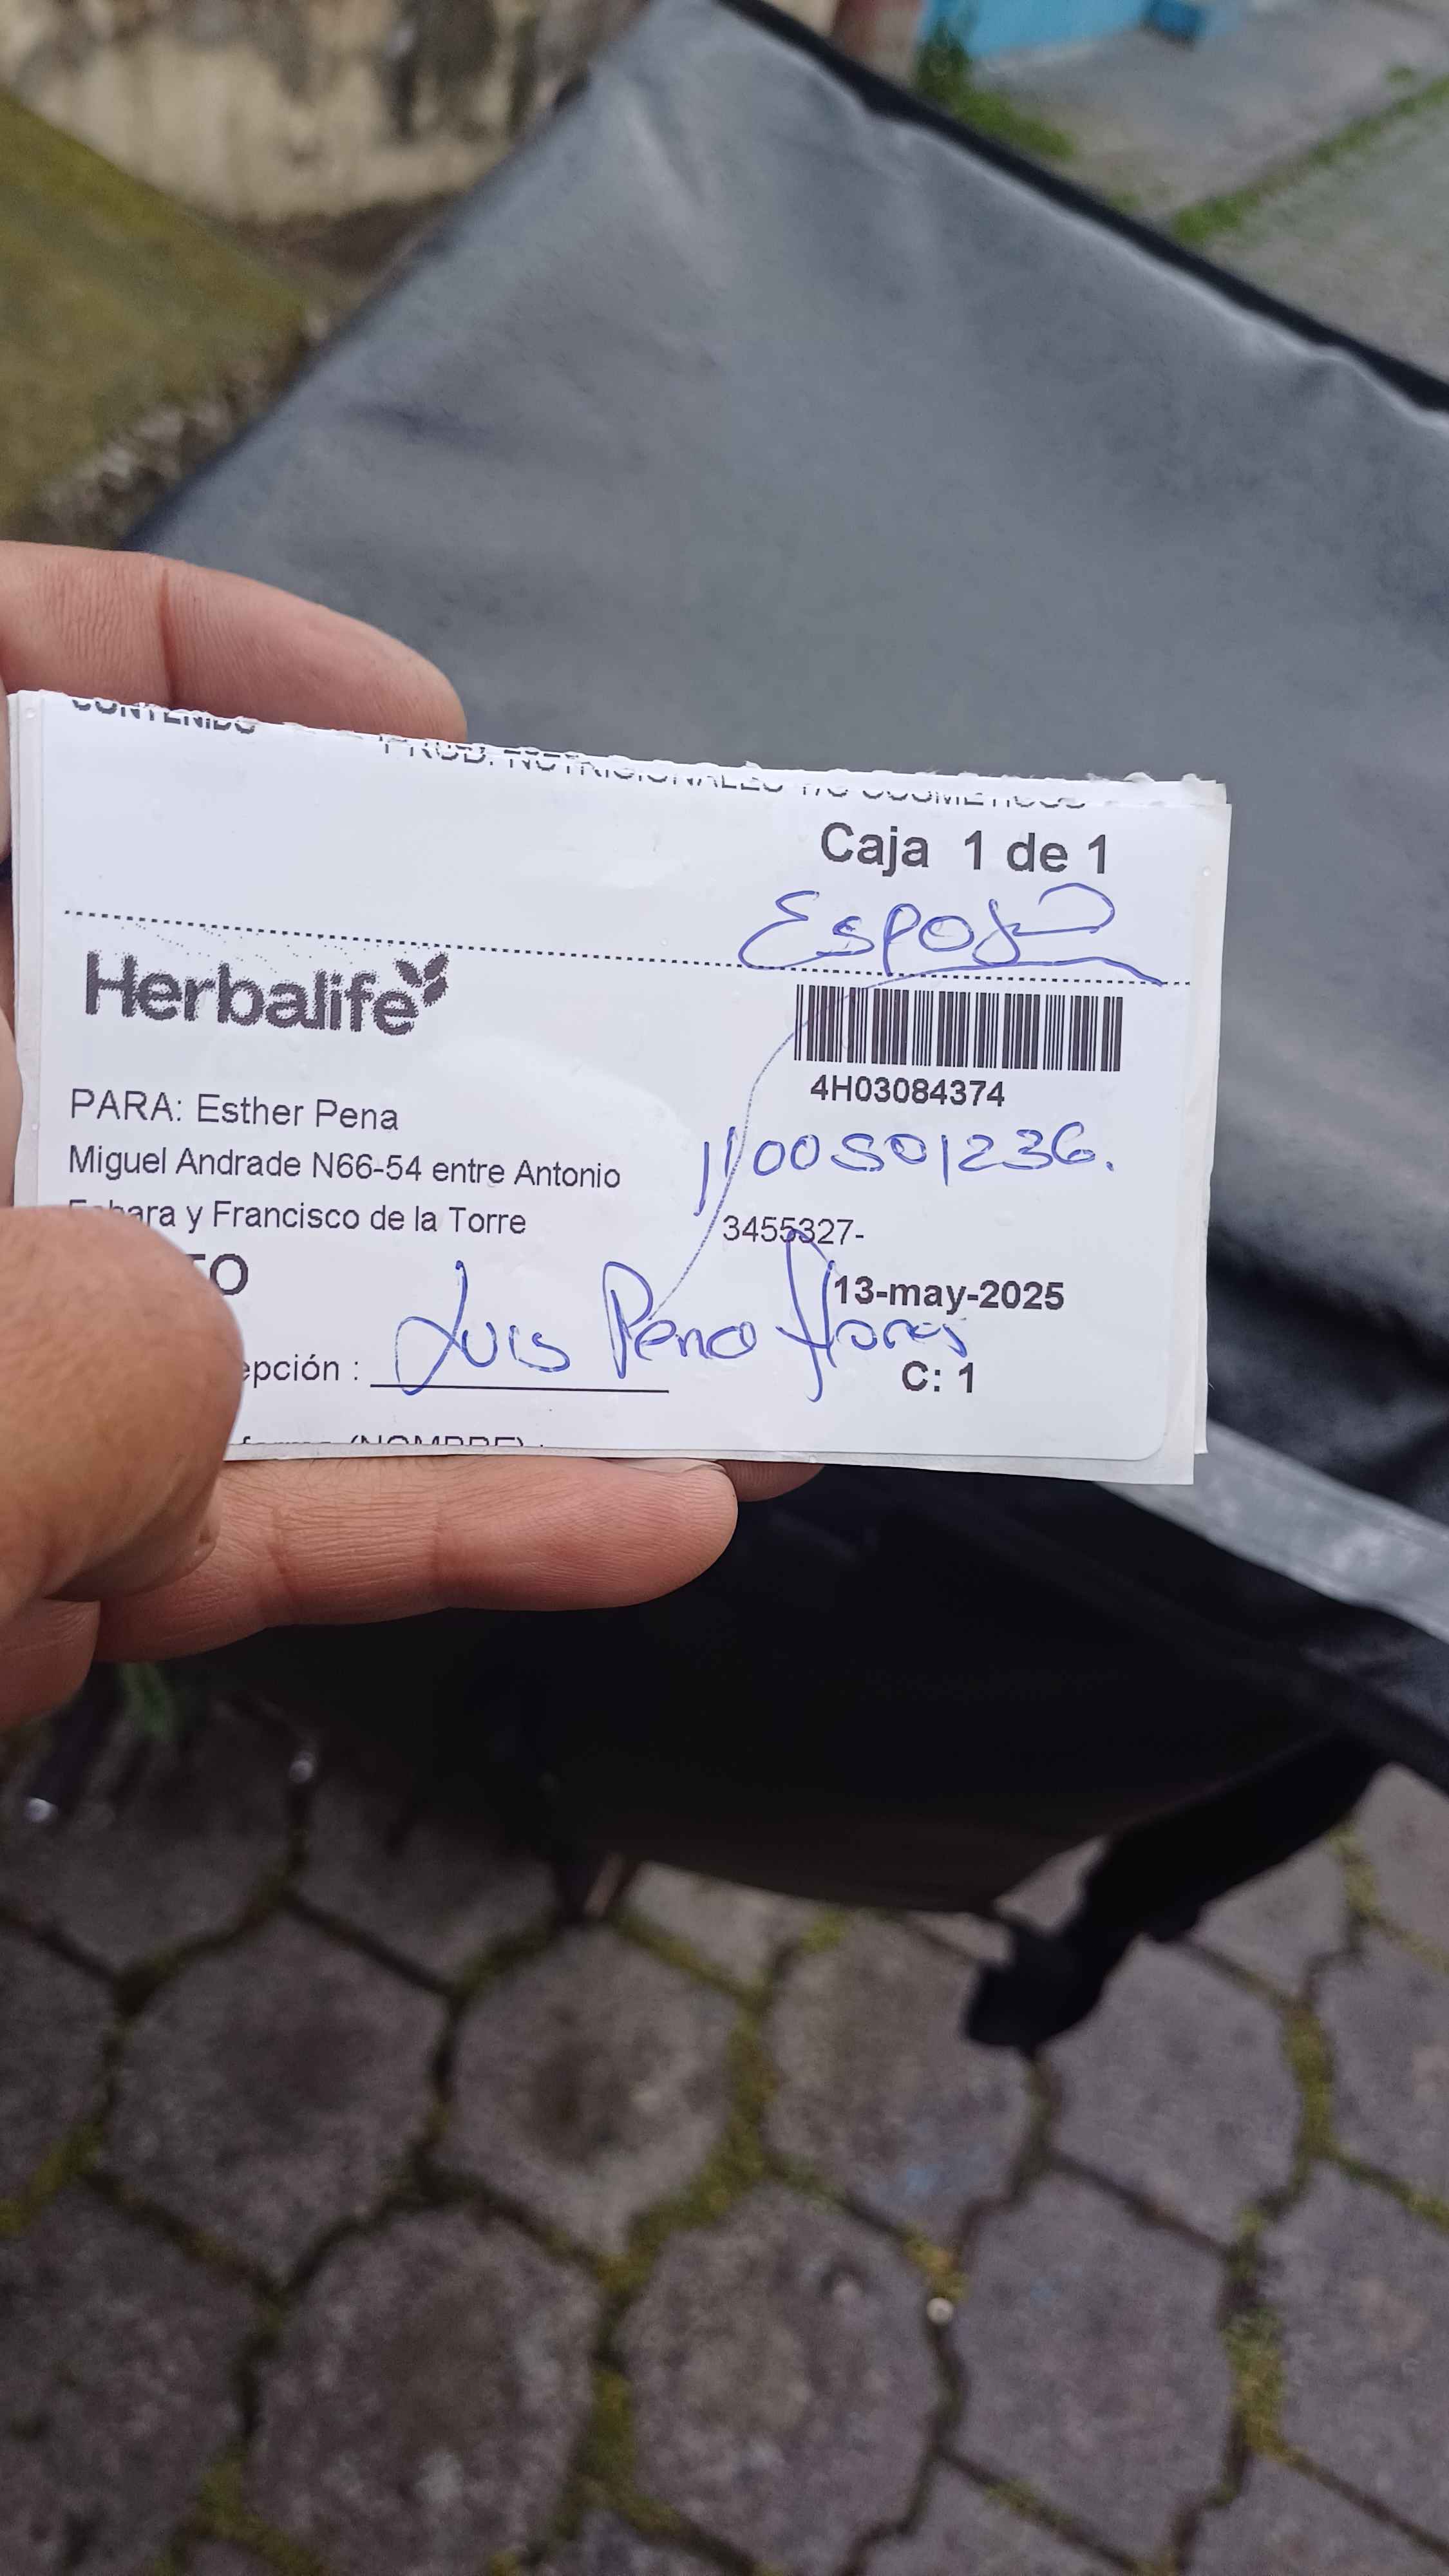 CONTENIDO PROD. NUTRICIONALES Y/O COSMETICOS
Caja 1 de 1
Esposo
Herbalife
4H03084374
PARA: Esther Pena
1100501236.
Miguel Andrade N66-54 entre Antonio
y Francisco de la Torre
3455327-
13-may-2025
epción : Luis Pena flores
C: 1
(NOMBRE) :